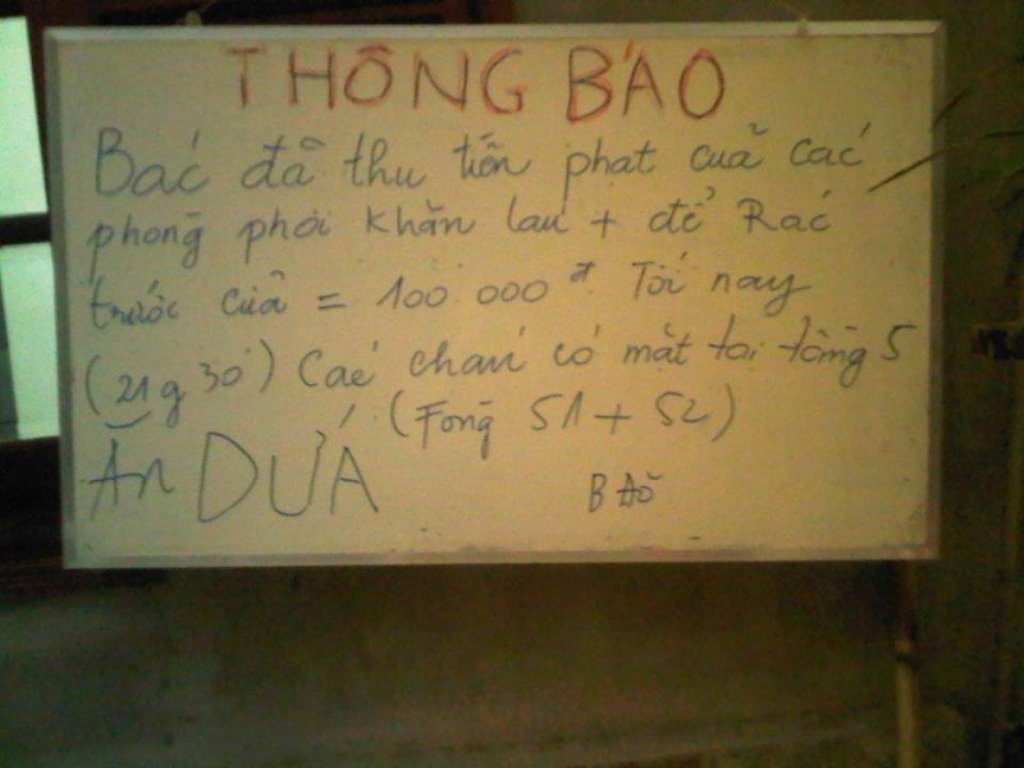 THÔNG BÁO
Bác đã thu tiền phạt của các
phòng phơi khăn lau + để Rác
trước cửa = 100.000đ. Tối nay
(21g30') Các cháu có mặt tại tầng 5
(Fòng 51 + 52)
Ăn DỨA
B ĐÔ